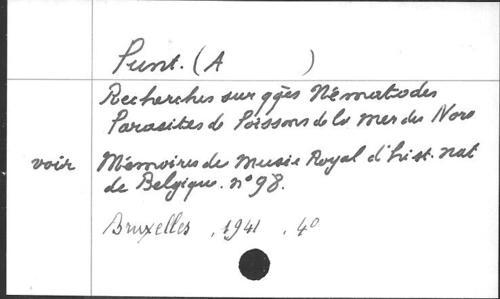 Punt. (A )
Recherches sur qqes Nématodes
Parasites de Poissons de la mer du Nord
voir Mémoires du Musée Royal d'hist. nat
de Belgique. n° 98.
Bruxelles , 1941 , 4°